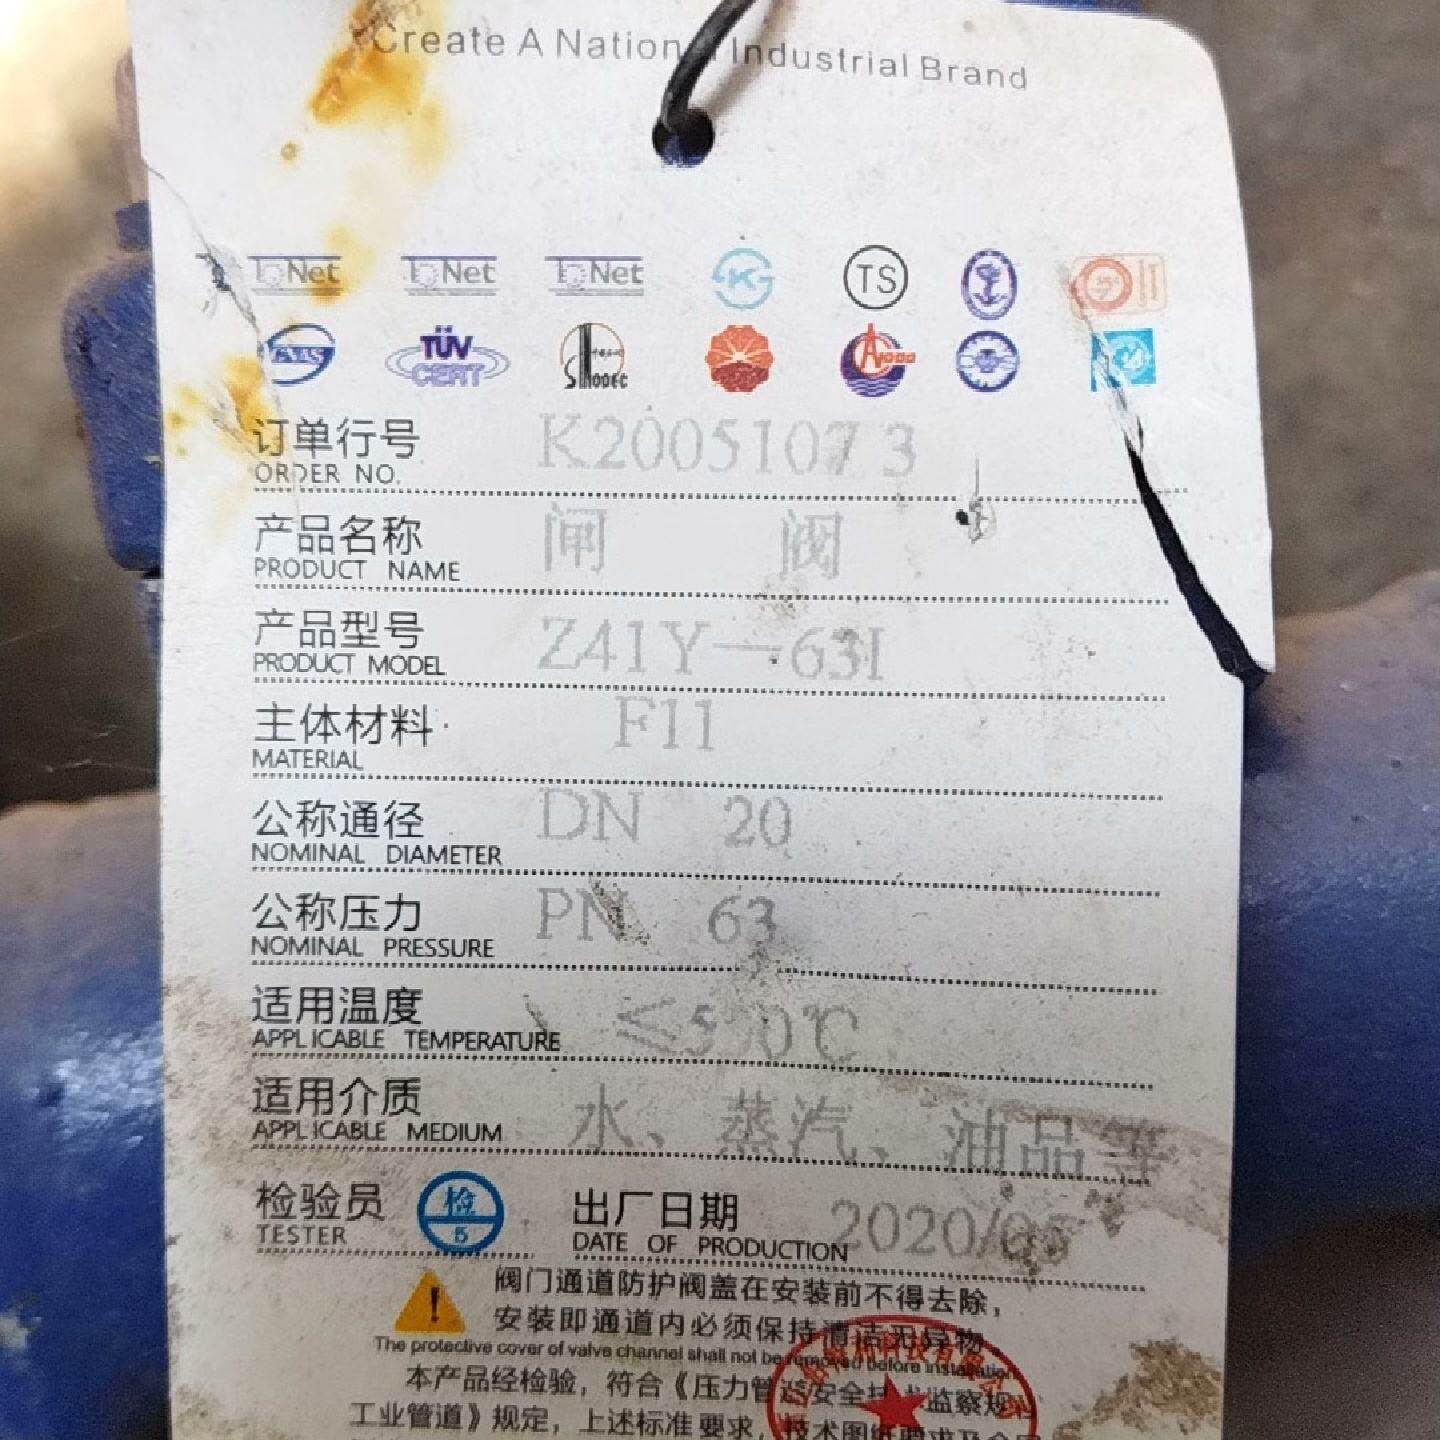 Create A Nation Industrial Brand
IQNet IQNet IQNet TS
CNAS TÜV CERT SINOPEC
订单行号 K20051073
ORDER NO.
产品名称 闸 阀
PRODUCT NAME
产品型号 Z41Y—63I
PRODUCT MODEL
主体材料 F11
MATERIAL
公称通径 DN 20
NOMINAL DIAMETER
公称压力 PN 63
NOMINAL PRESSURE
适用温度 ≤5 0℃
APPLICABLE TEMPERATURE
适用介质 水、蒸汽、油品等
APPLICABLE MEDIUM
检验员 检 5 出厂日期 2020/05
TESTER DATE OF PRODUCTION
阀门通道防护阀盖在安装前不得去除，
安装即通道内必须保持清洁无异物。
The protective cover of valve channel shall not be removed before installation
本产品经检验，符合《压力管道安全技术监察规
工业管道》规定，上述标准要求，技术图纸要求及合同